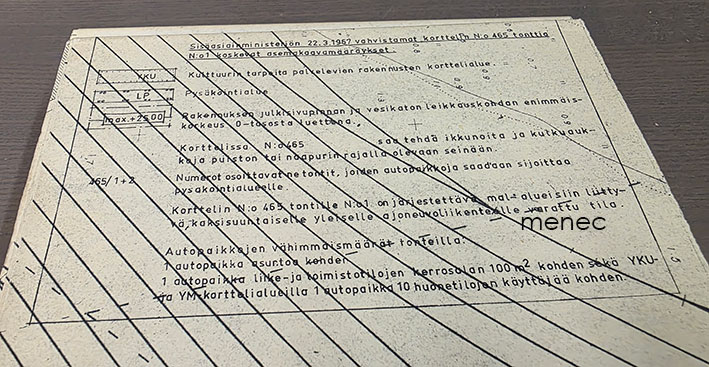 Sisäasiainministeriön 22.3.1967 vahvistamat korttelin N:o 465 tonttia
N:o1 koskevat asemakaavamääräykset.
YKU Kulttuurin tarpeita palvelevien rakennusten korttelialue.
LP Pysäköintialue.
max.+25.00 Rakennuksen julkisivupinnan ja vesikaton leikkauskohdan enimmäis-
korkeus 0-tasosta luettuna.
Korttelissa N:o465 saa tehdä ikkunoita ja kulkuauk-
koja puiston tai naapurin rajalla olevaan seinään.
465/1+2 Numerot osoittavat ne tontit, joiden autopaikkoja saadaan sijoittaa
pysäköintialueelle.
Korttelin N:o 465 tontille N:o1 on järjestettävä alueisiin liitty-
vä, kaksisuuntaiselle yleiselle ajoneuvoliikenteelle varattu tila.
menec
Autopaikkojen vähimmäismäärät tonteilla:
1 autopaikka asuntoa kohden
1 autopaikka liike-ja toimistotilojen kerrosalan 100 m² kohden sekä YKU-
ja YM-korttelialueilla 1 autopaikka 10 huonetilojen käyttäjää kohden.